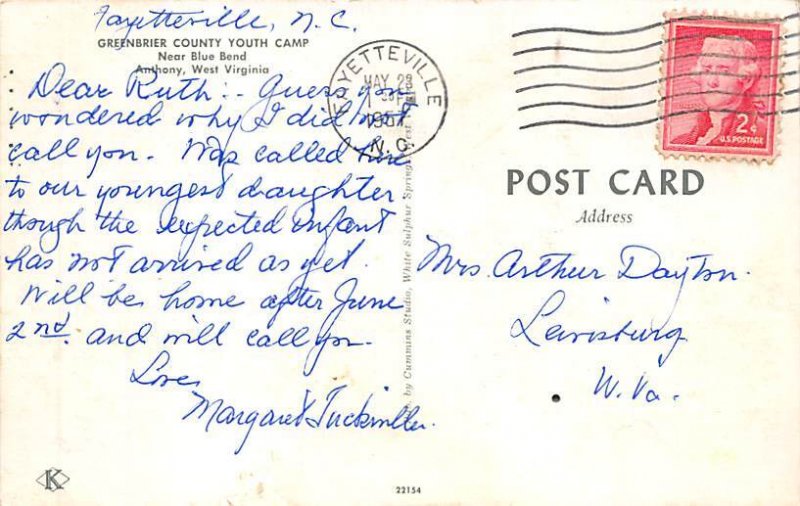 Fayetteville, N.C.
GREENBRIER COUNTY YOUTH CAMP
Near Blue Bend
Anthony, West Virginia
Dear Ruth:- Guess you
wondered why I did not
call you. Was called here
to our youngest daughter
though the expected infant
has not arrived as yet.
Will be home after June
2nd. and will call you.
Love,
Margaret Tuckwiller.
FAYETTEVILLE
MAY 23
N.C.
2¢
U.S. POSTAGE
POST CARD
Address
Mrs. Arthur Dayton.
Lewisburg
W. Va.
by Cummins Studio, White Sulphur Springs, West
K
22154